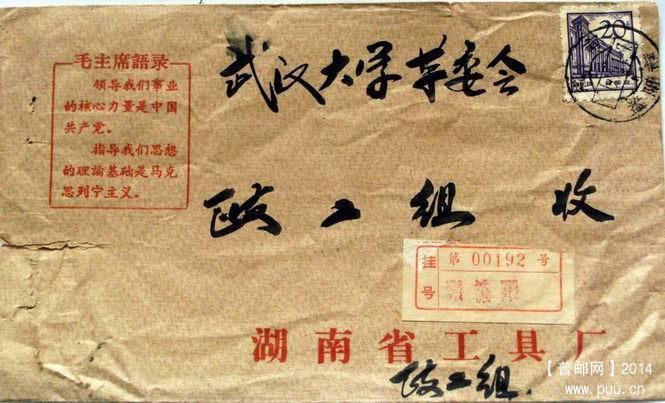 毛主席語录
领导我们事业
的核心力量是中国
共产党。
指导我们思想
的理論基础是马克
思列宁主义。
武汉大学革委会
20
政工组 收
挂号
第 00192 号
湖南省工具厂
政工组
【普邮网】2014
www.puu.cn